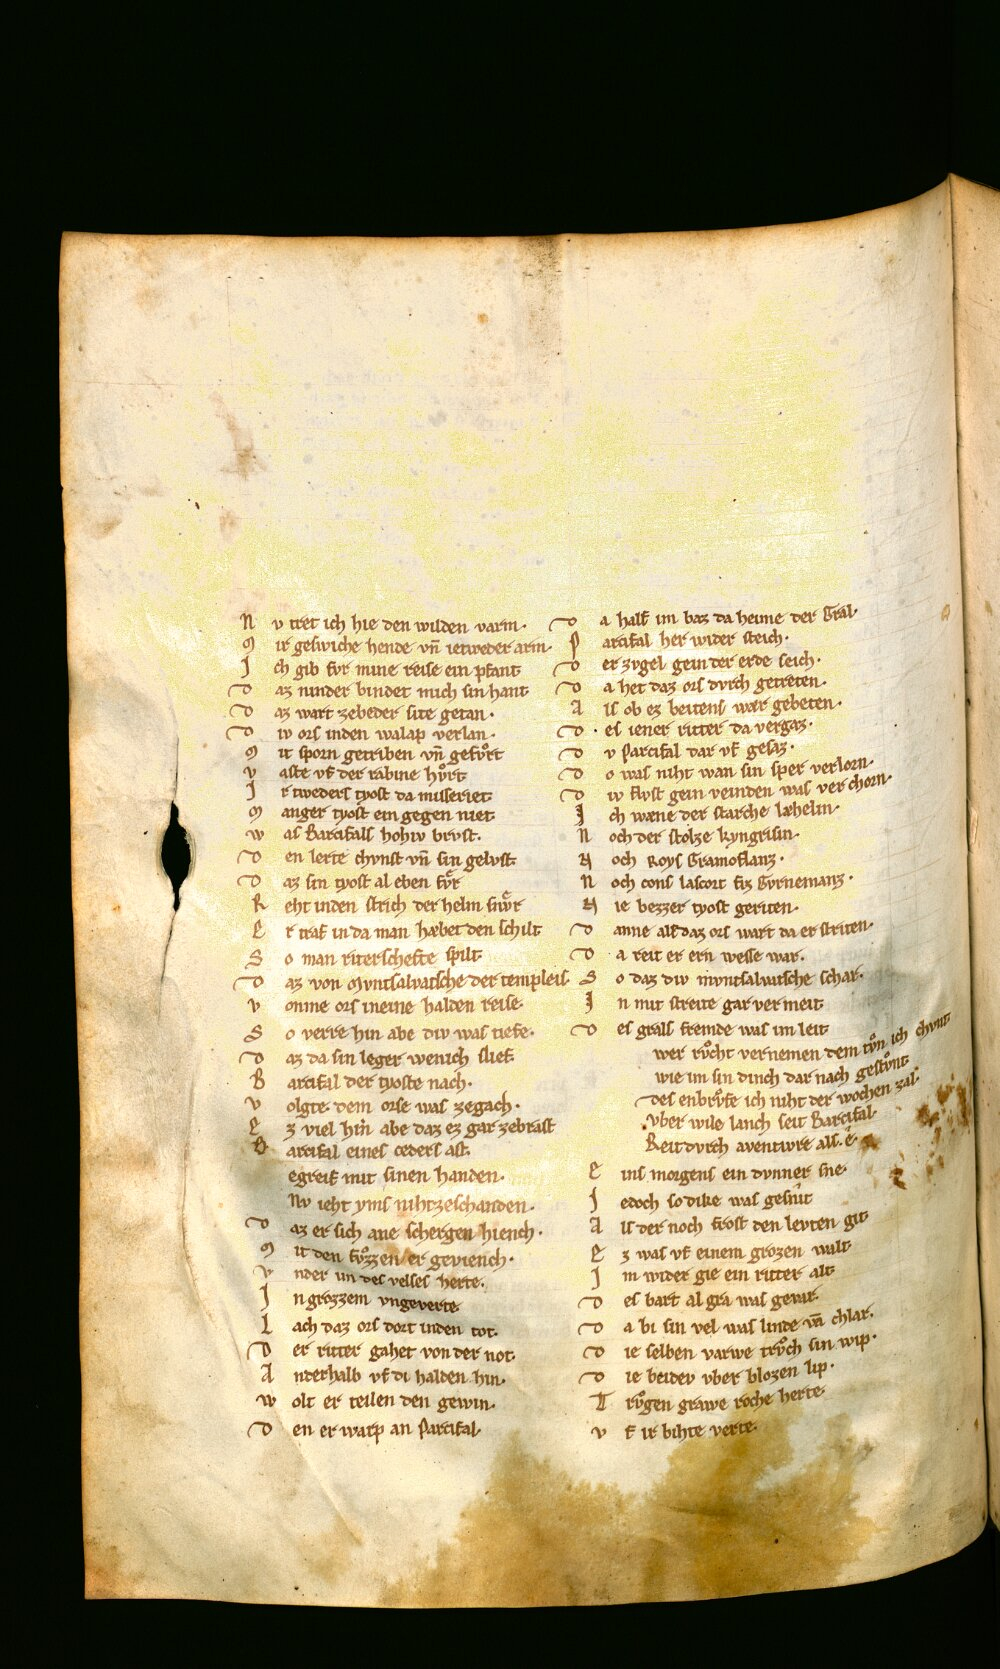 N v tret ich hie den wilden varm.
M ir geswiche hende vn̄ ietweder arm.
J ch gib fvr mine reise ein pfant
D az ninder bindet mich sin hant
D az wart zebeder site getan.
D iv ors inden walap verlan.
M it sporn getriben vn̄ gefvͦrt
V aste vf der rabine hvͦrt
J r tweders tyost da misseriet
M anger tyost ein gegen niet
W as Barcifals hohiv brvst.
D en lerte chvnst vn̄ sin gelvst
D az sin tyost al eben fvͤr
R eht inden strich der helm snvͤr
E r traf in da man hæbet den schilt
S o man riterschefte spilt
D az von Mvntsalvatsche der templeis
V onme ors ineine halden reise.
S o verre hin abe div was tiefe.
D az da sin leger wenich slief
B arcifal der tyoste nach.
V olgte. dem orse was zegach.
E z viel hin abe daz ez gar zebrast
B arcifal eines ceders ast.
egreif mit sinen handen.
Nv ieht yms nihtzeschanden.
D az er sich ane schergen hiench.
M it den fvͦzzen er geviench.
V nder im des velses herte.
J n grozzem vngeverte
L ach daz ors dort inden tot.
D er ritter gahet von der not.
A nderhalb vf di halden hin.
W olt er teilen den gewin.
D en er warp an Parcifal.
D a half im baz da heime der Gral.
P arcifal her wider steich.
D er zvgel gein der erde seich.
D a het daz ors dvrch getreten.
A ls ob ez beitens wær gebeten.
D es iener ritter da vergaz.
D v Parcifal dar vf gesaz.
D o was niht wan sin sper verlorn.
D iv flvst gein veinden was verchorn.
J ch wæne der starche læhelin.
N och der stolze kyngrisin.
N och Roys Gramoflanz.
N och cons lascort fiz Gvrnemanz.
N ie bezzer tyost geriten.
D anne als daz ors wart da er striten.
D a reit er ern wesse war.
S o daz div mvntsalvatsche schar.
J n mit streite gar vermeit
D es grals fremde was im leit
wer rvͦcht vernemen dem tvͦn ich chvnt
wie im sin dinch dar nach gestvͦnt
des enbrvͤfe ich niht der wochen zal.
vber wile lanch seit Barcifal.
Reit dvrch aventivre als. e
E ins morgens ein dvnner sne.
J edoch so dike was gesnit
A ls der noch frost den levten git
E z was vf einem grozen walt
J m wider gie ein ritter alt
D es bart al gra was gevar.
D a bi sin vel was linde vn̄ chlar.
D ie selben varwe trvͦch sin wip.
D ie beidev vber blozen lip.
T rvͦgen grawe roche herte.
V f ir bihte verte.